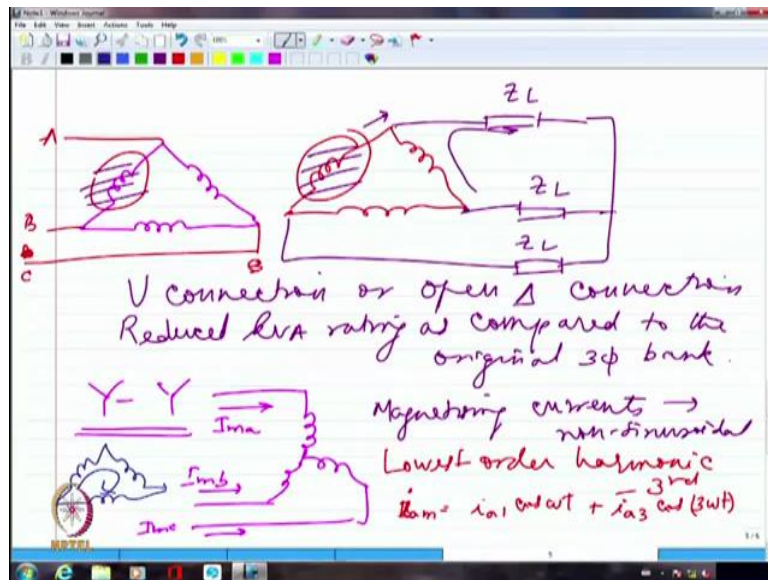 Note1 - Windows Journal
File Edit View Insert Actions Tools Help
100%
B I
A
B
C
B
Z L
Z L
Z L
V connection or open Δ connection
Reduced kVA rating as compared to the
original 3φ bank.
Y - Y
Ima
Imb
Imc
Magnetising currents →
non-sinusoidal
Lowest order harmonic
– 3rd
iam = ia1 cos ωt + ia3 cos (3ωt)
NPTEL
5
5/5